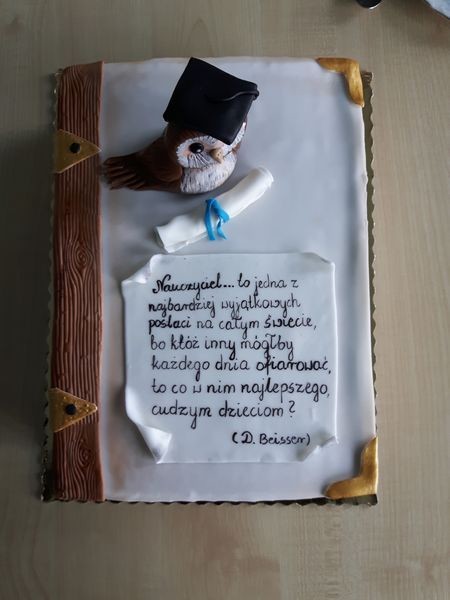 Nauczyciel... to jedna z
najbardziej wyjątkowych
postaci na całym świecie,
bo któż inny mógłby
każdego dnia ofiarować,
to co w nim najlepszego,
cudzym dzieciom?
(D. Beisser)